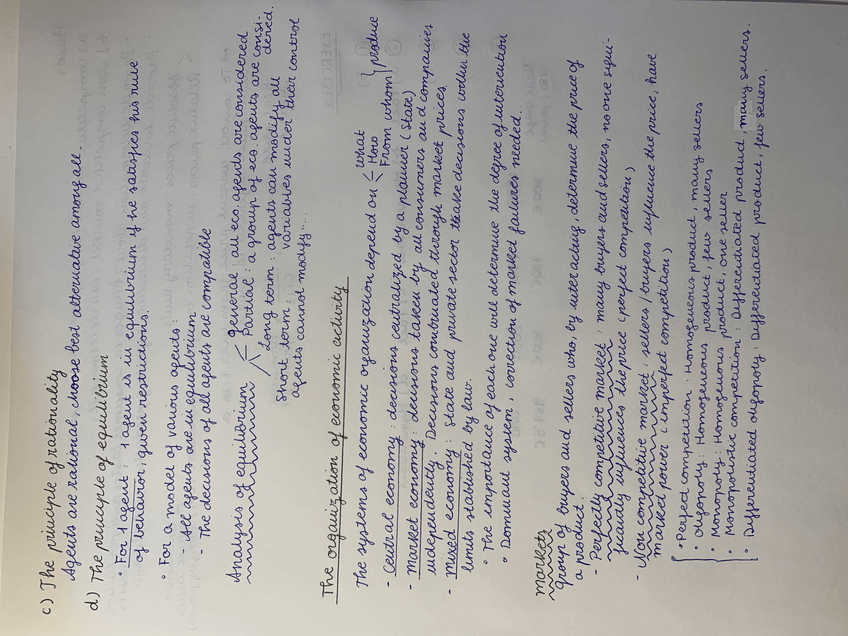 c) The principle of rationality
Agents are rational, choose best alternative among all.
d) The principle of equilibrium
• For 1 agent : 1 agent is in equilibrium if he satisfies his rule
of behavior, given restrictions.
• For a model of various agents:
- All agents are in equilibrium
- The decisions of all agents are compatible
Analysis of equilibrium
General : all eco. agents are considered
Partial : a group of eco. agents are consi-
dered.
Long term : agents can modify all
variables under their control
Short term :
agents cannot modify....
The organization of economic activity
The systems of economic organization depend on
What
How
From whom
} produce
- Central economy : decisions centralized by a planner (State)
- Market economy : decisions taken by all consumers and companies
independently. Decisions coordinated through market prices
- Mixed economy : State and private sector take decisions within the
limits stablished by law.
• The importance of each one will determine the degree of intervention
• Dominant system, correction of market failures needed.
Markets
Group of buyers and sellers who, by interacting, determine the price of
a product.
- Perfectly competitive market : many buyers and sellers, no one signi-
ficantly influences the price (perfect competition)
- Non competitive market : sellers / buyers influence the price, have
marked power (imperfect competition)
• Perfect competition : Homogeneous product, many sellers
• Oligopoly : Homogeneous product, few sellers
• Monopoly : Homogeneous product, one seller
• Monopolistic competition : Differentiated product, many sellers.
• Differentiated oligopoly : Differentiated product, few sellers.